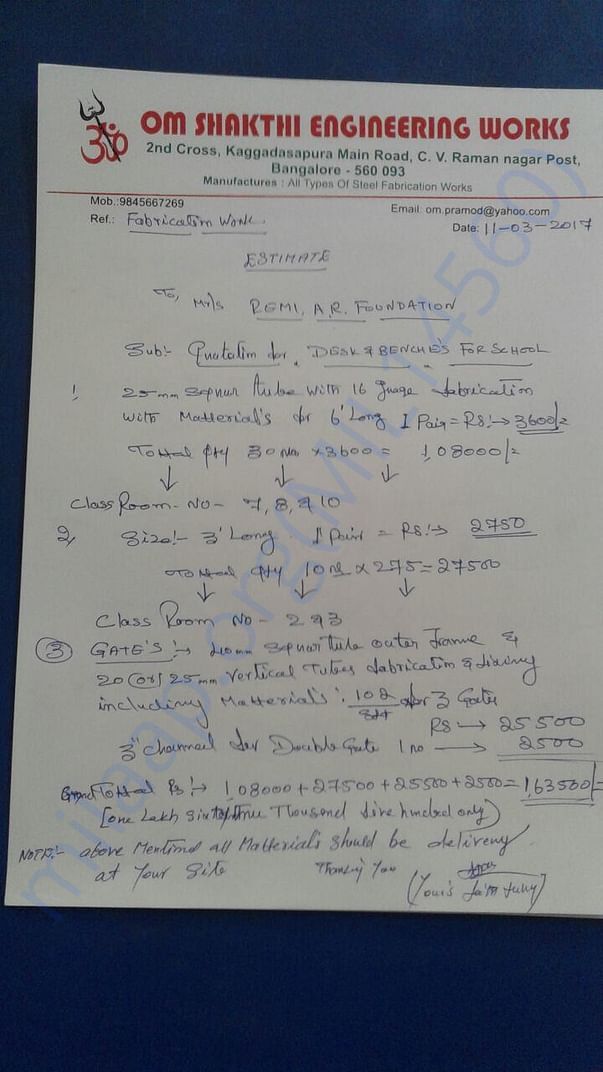 ॐ
OM SHAKTHI ENGINEERING WORKS
2nd Cross, Kaggadasapura Main Road, C. V. Raman nagar Post,
Bangalore - 560 093
Manufactures : All Types Of Steel Fabrication Works
Mob.:9845667269
Email: om.pramod@yahoo.com
Ref.: Fabrication Work.
Date: 11-03-2017
ESTIMATE
To, M/s REMI, A.R. FOUNDATION
Sub:- Quotation for DESK & BENCHE'S FOR SCHOOL
1, 25mm Squar tube with 16 guage fabrication
with Matterial's for 6' Long 1 Pair = RS:→ 3600/-
Tottal Qty 30 No x 3600 = 1,08000/-
Class Room - No - 7, 8, 9 10
2, Size:- 3' Long. 1 Pair = RS:→ 2750
Tottal Qty 10 x 275 = 27500
Class Room No - 2 & 3
3 GATE'S :→ 40mm Squar tube outer frame &
20 (or) 25mm Vertical Tubes fabrication & fixing
including Matterial's: 102 Sft for 3 Gates
RS → 25500
3" channel for Double Gate 1 no → 2500
Grand Tottal Rs :→ 1,08000 + 27500 + 25500 + 2500 = 1,63500/-
[one Lakh Sixty three Thousand five hundred only)
NOTE:- above Mentined all Matterial's Should be delivery
at Your Site
Thanking You
(Your's faith fully)
milaap.org(MIL14560)